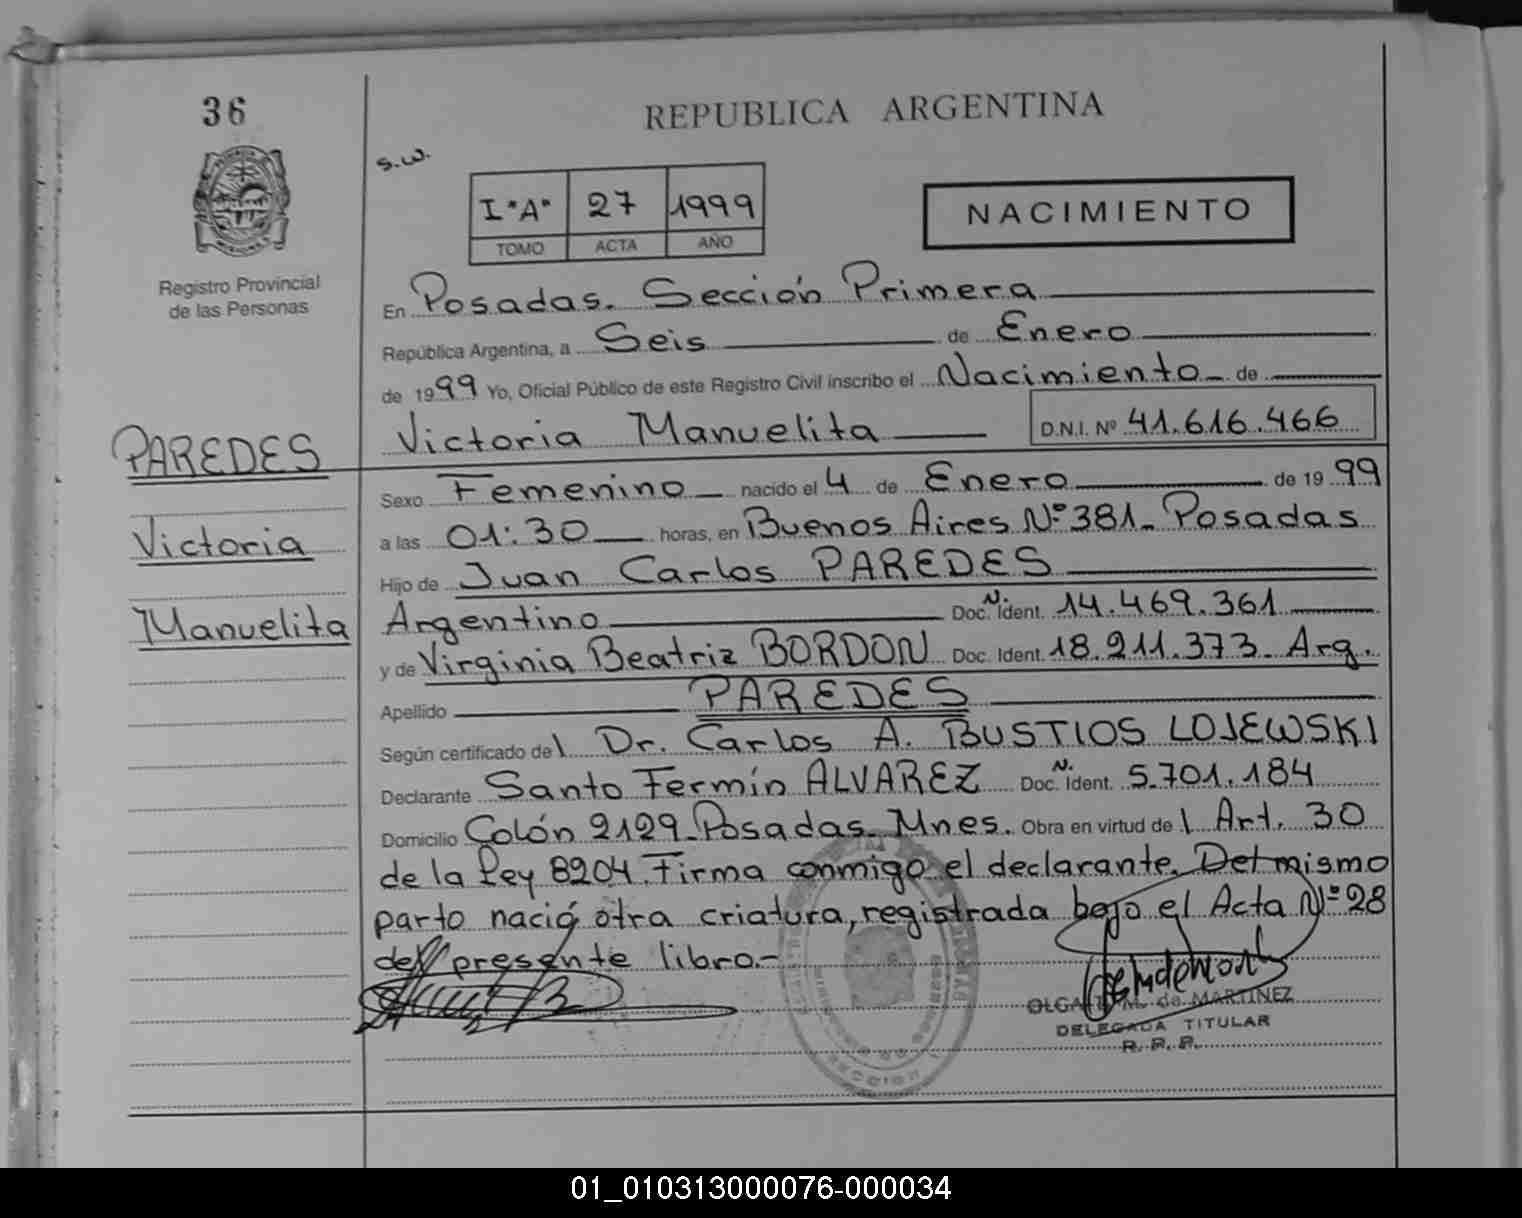 36
REPUBLICA ARGENTINA
s.w.
I "A" 27 1999
TOMO ACTA AÑO
NACIMIENTO
Registro Provincial
de las Personas
En Posadas. Sección Primera
República Argentina, a Seis de Enero
de 1999 Yo, Oficial Público de este Registro Civil inscribo el Nacimiento de
Victoria Manuelita D.N.I. Nº 41.616.466
PAREDES
Victoria
Manuelita
Sexo Femenino nacido el 4 de Enero de 1999
a las 01:30 horas, en Buenos Aires Nº 381_ Posadas
Hijo de Juan Carlos PAREDES
Argentino Doc. N. Ident. 14.469.361
y de Virginia Beatriz BORDON Doc. Ident. 18.211.373_ Arg.
Apellido PAREDES
Según certificado del Dr. Carlos A. BUSTIOS LOJEWSKI
Declarante Santo Fermín ALVAREZ Doc. N. Ident. 5.701.184
Domicilio Colón 2129_ Posadas_ Mnes. Obra en virtud del Art. 30
de la Ley 8204. Firma conmigo el declarante. Del mismo
parto nació otra criatura, registrada bajo el Acta Nº 28
del presente libro.-
de MARTINEZ
DELEGADA TITULAR
R. P. P.
01_010313000076-000034